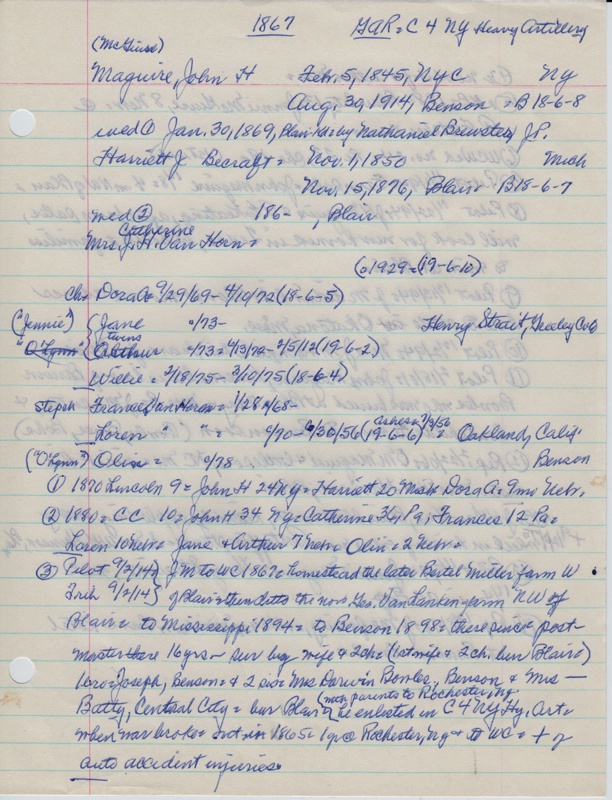 1867 GAR = C 4 NY Heavy Artillery
(McGuire)
Maguire, John H Feb. 5, 1845, NYC NY
Aug. 30, 1914, Benson = B 18-6-8
wed ① Jan. 30, 1869, Blair by Nathaniel Brewster, J.P.
Harriett J. Becraft = Nov. 1, 1850 Mich
Nov. 15, 1876, Blair = B 18-6-7
wed ② 186- , Blair
Catherine
Mrs. J. H. Van Horn =
(01929 = (19-6-10)
ch= Dora A = 9/29/69 - 4/10/72 (18-6-5)
("Jennie") Jane 0/73- Henry Strait, Greeley Co
twins
"O'Lynn" Arthur 0/73 = 4/13/72 - 2/5/12 (19-6-2)
Willie = 2/18/75 - 3/10/75 (18-6-4)
steph Frances Van Horn = 1/28/68-
Loren " " = 0/70 - 6/30/56 (19-6-6) ashes = 7/3/56 = Oakland, Calif
("O'Lynn") Olin = 0/78 Benson
① 1870 Lincoln 9 = John H 24 NY = Harriett 20 Mich Dora A = 9mo Nebr.
② 1880 = CC 10 = John H 34 NY = Catherine 36, Pa, Frances 12 Pa =
Loren 10 Nebr = Jane & Arthur 7 Nebr = Olin = 2 Nebr =
③ Pilot 9/2/14) JM to WC 1867 = homestead the later Bertel Miller farm W
Trib 9/2/14) of Blair = then to the now Geo. Van Lankin farm NW of
Blair = to Mississippi 1894 = to Benson 1898 = there since = post-
master there 16 yrs = sur by wife & 2 ch = (1st wife & 2 ch. bur Blair)
1 bro = Joseph, Benson = & 2 sis = Mrs Darwin Bowles, Benson & Mrs —
Batty, Central City = bur Blair = (with parents to Rochester, Ny
he enlisted in C 4 NY Hy. Art =
when war broke out = 1865 = 1 yr @ Rochester, Ny & to WC = + of
auto accident injuries.